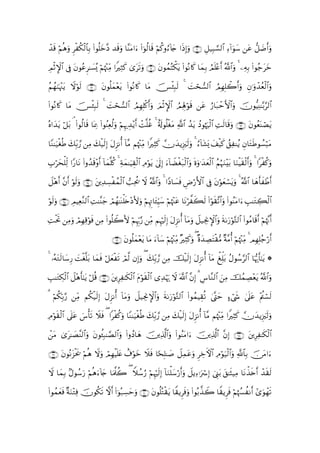 وَأَضَلُّ عَن سَوَآءِ ٱلسَّبِيلِ ﴿٦٠﴾ وَإِذَا جَآءُوكُمْ قَالُوٓا۟ ءَامَنَّا وَقَد دَّخَلُوا۟ بِٱلْكُفْرِ وَهُمْ قَدْ
خَرَجُوا۟ بِهِۦ ۚ وَٱللَّهُ أَعْلَمُ بِمَا كَانُوا۟ يَكْتُمُونَ ﴿٦١﴾ وَتَرَىٰ كَثِيرًا مِّنْهُمْ يُسَٰرِعُونَ فِى ٱلْإِثْمِ
وَٱلْعُدْوَٰنِ وَأَكْلِهِمُ ٱلسُّحْتَ ۚ لَبِئْسَ مَا كَانُوا۟ يَعْمَلُونَ ﴿٦٢﴾ لَوْلَا يَنْهَىٰهُمُ
ٱلرَّبَّٰنِيُّونَ وَٱلْأَحْبَارُ عَن قَوْلِهِمُ ٱلْإِثْمَ وَأَكْلِهِمُ ٱلسُّحْتَ ۚ لَبِئْسَ مَا كَانُوا۟
يَصْنَعُونَ ﴿٦٣﴾ وَقَالَتِ ٱلْيَهُودُ يَدُ ٱللَّهِ مَغْلُولَةٌ ۚ غُلَّتْ أَيْدِيهِمْ وَلُعِنُوا۟ بِمَا قَالُوا۟ ۘ بَلْ يَدَاهُ
مَبْسُوطَتَانِ يُنفِقُ كَيْفَ يَشَآءُ ۚ وَلَيَزِيدَنَّ كَثِيرًا مِّنْهُم مَّآ أُنزِلَ إِلَيْكَ مِن رَّبِّكَ طُغْيَٰنًا
وَكُفْرًا ۚ وَأَلْقَيْنَا بَيْنَهُمُ ٱلْعَدَٰوَةَ وَٱلْبَغْضَآءَ إِلَىٰ يَوْمِ ٱلْقِيَٰمَةِ ۚ كُلَّمَآ أَوْقَدُوا۟ نَارًا لِّلْحَرْبِ
أَطْفَأَهَا ٱللَّهُ ۚ وَيَسْعَوْنَ فِى ٱلْأَرْضِ فَسَادًا ۚ وَٱللَّهُ لَا يُحِبُّ ٱلْمُفْسِدِينَ ﴿٦٤﴾ وَلَوْ أَنَّ أَهْلَ
ٱلْكِتَٰبِ ءَامَنُوا۟ وَٱتَّقَوْا۟ لَكَفَّرْنَا عَنْهُمْ سَيِّـَٔاتِهِمْ وَلَأَدْخَلْنَٰهُمْ جَنَّٰتِ ٱلنَّعِيمِ ﴿٦٥﴾ وَلَوْ
أَنَّهُمْ أَقَامُوا۟ ٱلتَّوْرَىٰةَ وَٱلْإِنجِيلَ وَمَآ أُنزِلَ إِلَيْهِم مِّن رَّبِّهِمْ لَأَكَلُوا۟ مِن فَوْقِهِمْ وَمِن تَحْتِ
أَرْجُلِهِم ۚ مِّنْهُمْ أُمَّةٌ مُّقْتَصِدَةٌ ۖ وَكَثِيرٌ مِّنْهُمْ سَآءَ مَا يَعْمَلُونَ ﴿٦٦﴾
۞ يَٰٓأَيُّهَا ٱلرَّسُولُ بَلِّغْ مَآ أُنزِلَ إِلَيْكَ مِن رَّبِّكَ ۖ وَإِن لَّمْ تَفْعَلْ فَمَا بَلَّغْتَ رِسَالَتَهُۥ ۚ
وَٱللَّهُ يَعْصِمُكَ مِنَ ٱلنَّاسِ ۗ إِنَّ ٱللَّهَ لَا يَهْدِى ٱلْقَوْمَ ٱلْكَٰفِرِينَ ﴿٦٧﴾ قُلْ يَٰٓأَهْلَ ٱلْكِتَٰبِ
لَسْتُمْ عَلَىٰ شَىْءٍ حَتَّىٰ تُقِيمُوا۟ ٱلتَّوْرَىٰةَ وَٱلْإِنجِيلَ وَمَآ أُنزِلَ إِلَيْكُم مِّن رَّبِّكُمْ ۗ
وَلَيَزِيدَنَّ كَثِيرًا مِّنْهُم مَّآ أُنزِلَ إِلَيْكَ مِن رَّبِّكَ طُغْيَٰنًا وَكُفْرًا ۖ فَلَا تَأْسَ عَلَى ٱلْقَوْمِ
ٱلْكَٰفِرِينَ ﴿٦٨﴾ إِنَّ ٱلَّذِينَ ءَامَنُوا۟ وَٱلَّذِينَ هَادُوا۟ وَٱلصَّٰبِـُٔونَ وَٱلنَّصَٰرَىٰ مَنْ
ءَامَنَ بِٱللَّهِ وَٱلْيَوْمِ ٱلْءَاخِرِ وَعَمِلَ صَٰلِحًا فَلَا خَوْفٌ عَلَيْهِمْ وَلَا هُمْ يَحْزَنُونَ ﴿٦٩﴾
لَقَدْ أَخَذْنَا مِيثَٰقَ بَنِىٓ إِسْرَٰٓءِيلَ وَأَرْسَلْنَآ إِلَيْهِمْ رُسُلًا ۖ كُلَّمَا جَآءَهُمْ رَسُولٌۢ بِمَا لَا
تَهْوَىٰٓ أَنفُسُهُمْ فَرِيقًا كَذَّبُوا۟ وَفَرِيقًا يَقْتُلُونَ ﴿٧٠﴾ وَحَسِبُوٓا۟ أَلَّا تَكُونَ فِتْنَةٌ فَعَمُوا۟